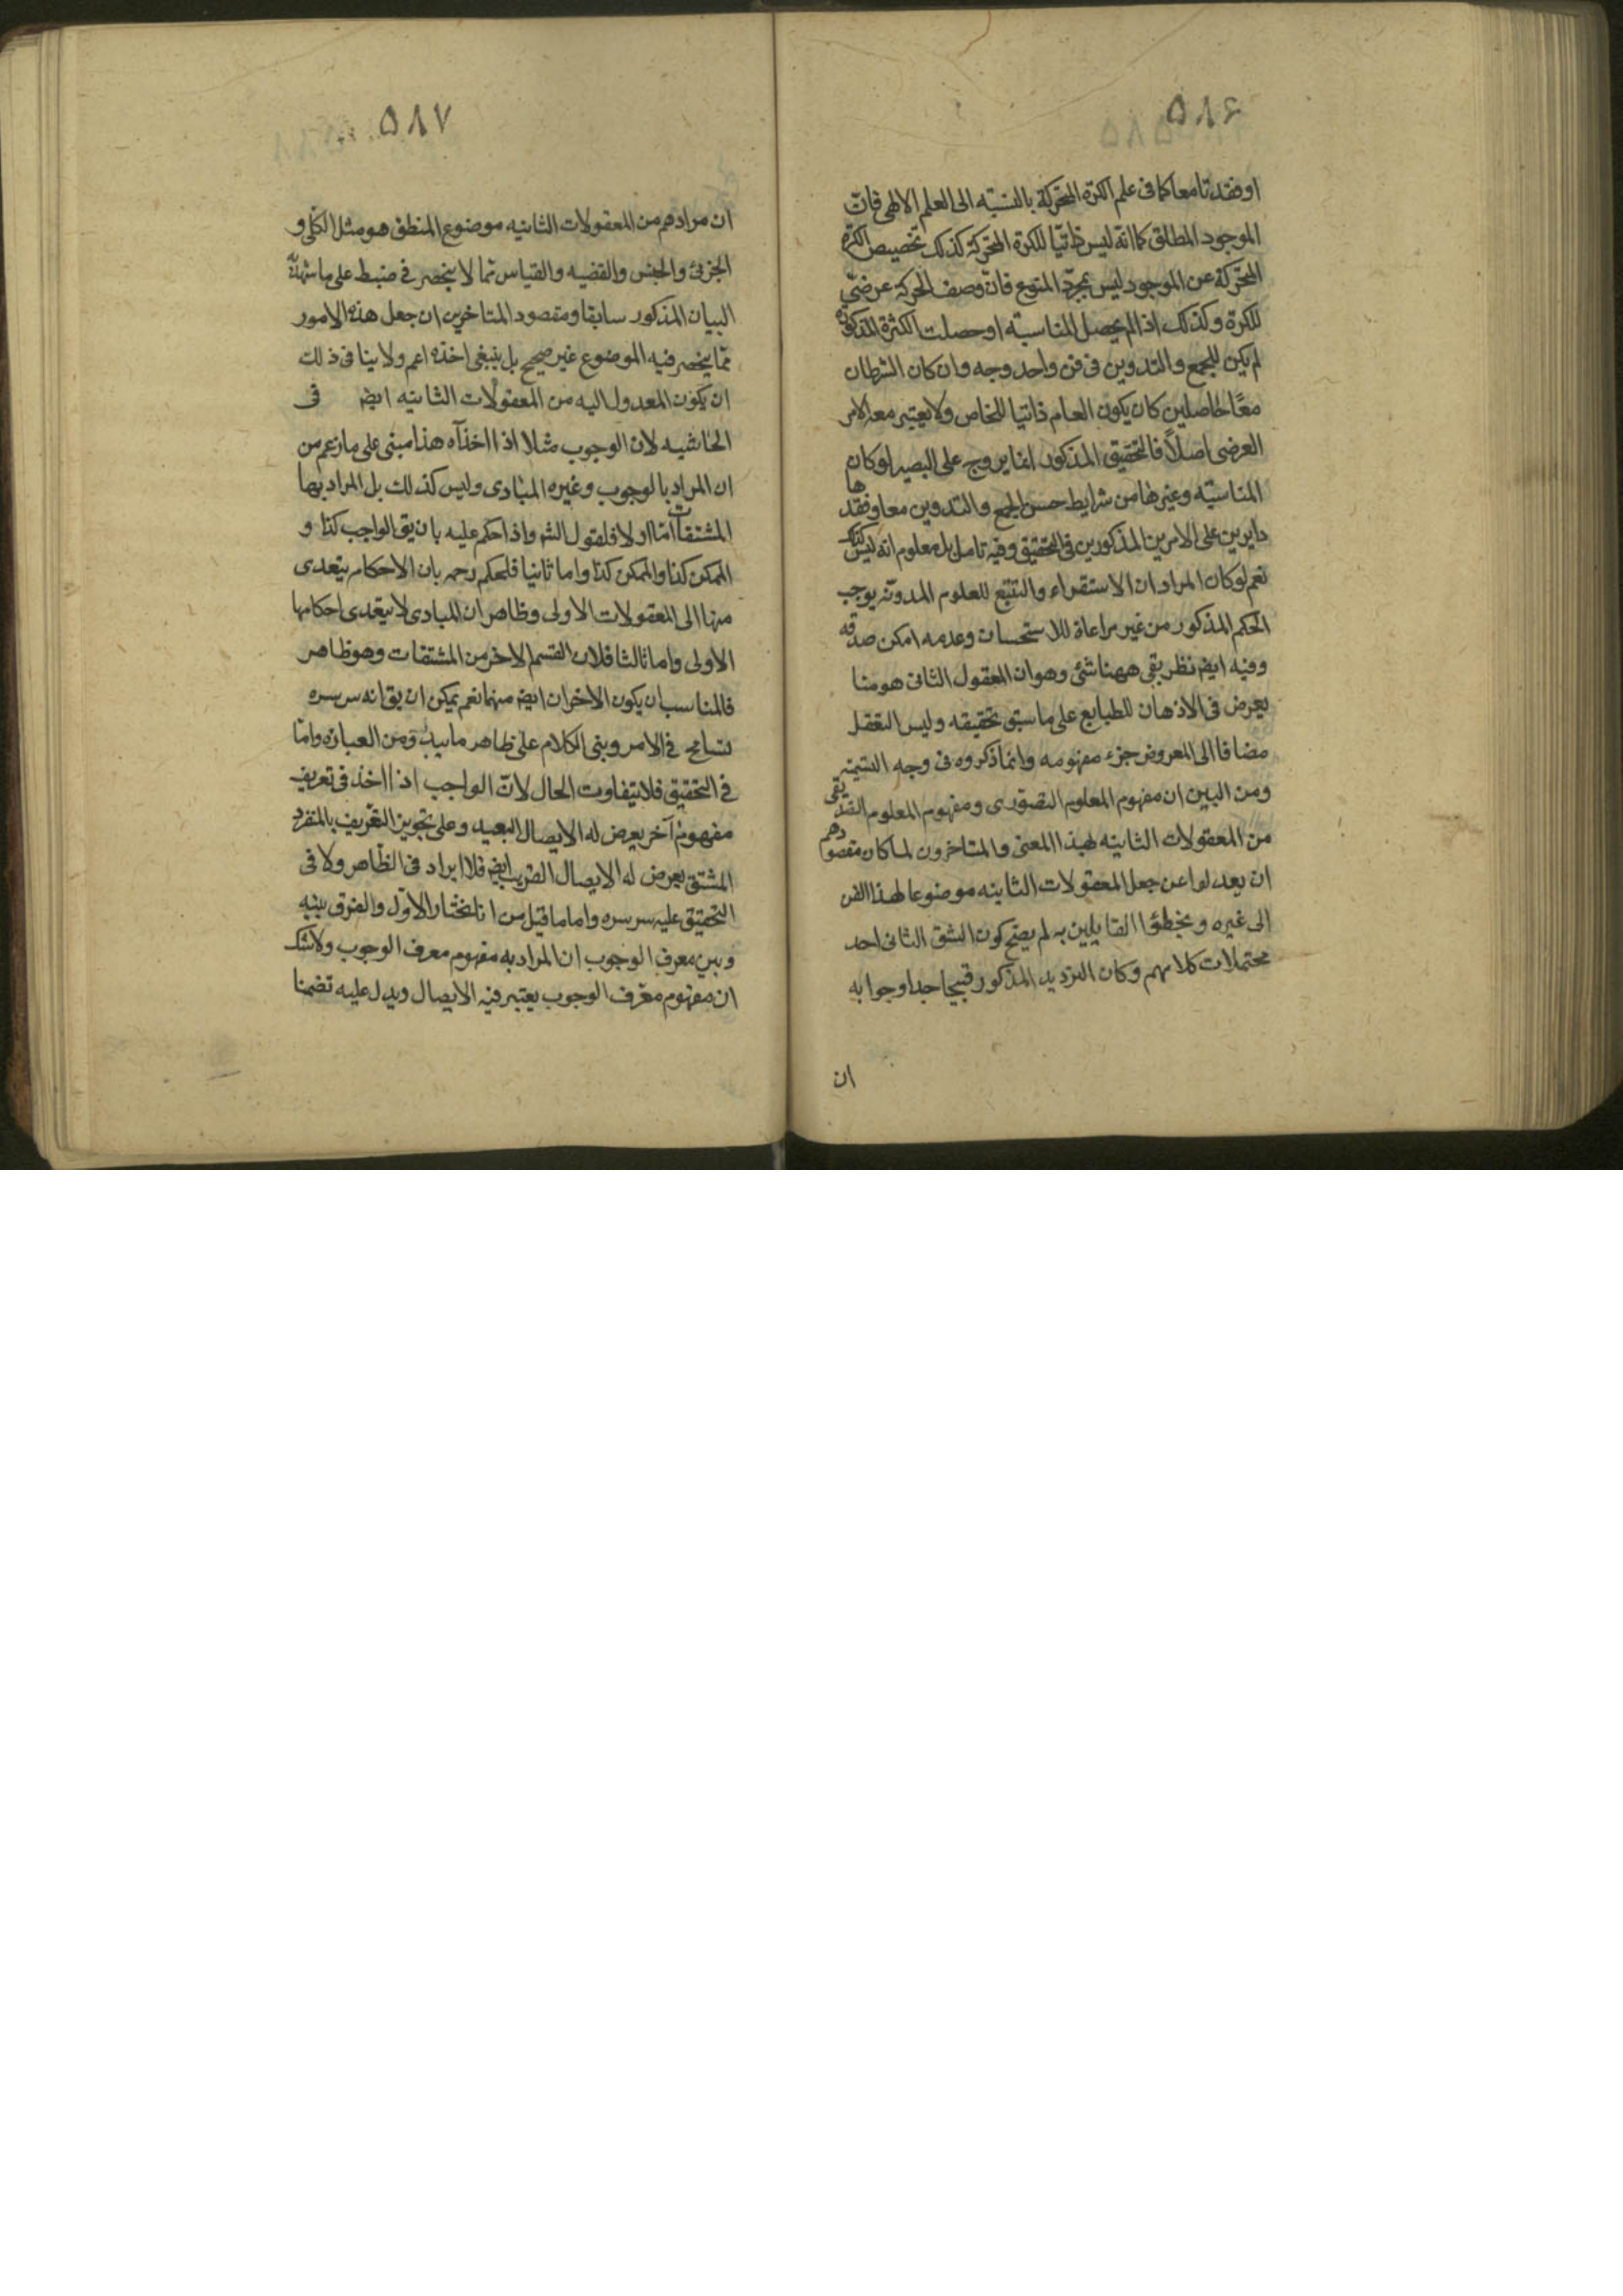 ۵۸۶
او فقدتا معا كما فى علم الكرة المتحركة بالنسبة الى العلم الالهى فانّ
الموجود المطلق كما انّه ليس ذاتيّا للكرة المتحركة كذلك تخصيص الكرة
المتحركة عن الموجود ليس بمجرّد المنوع فانّ وصف الحركة عرضىّ
للكرة وكذلك اذا لم يحصل المناسبة او حصلت الكثرة المذكورة
لم يكن للجمع والتدوين فى فن واحد وجه وان كان الشرطان
معًا حاصلين كان يكون العام ذاتيا للخاص ولا يعتبر معه الامر
العرضى اصلاً فالتحقيق المذكور انما يروج على البصير لو كان
المناسبة وغيرها من شرايط حسن الجمع والتدوين معا وفقدها
دايرين على الامرين المذكورين فى التحقيق وفيه تامل بل معلوم انه ليس كذلك
نعم لو كان المراد ان الاستقراء والتتبع للعلوم المدونة يوجب
الحكم المذكور من غير مراعاة للاستحسان وعدمه امكن صدقه
وفيه ايضا نظر بقى ههنا شئ وهو ان المعقول الثانى هو منا
يعرض فى الاذهان للطبايع على ما سبق تحقيقه وليس التعقل
مضافا الى المعروض جزء مفهومه وانما ذكروه فى وجه التسمية
ومن البين ان مفهوم المعلوم التصورى ومفهوم المعلوم التصديقى
من المعقولات الثانيه لهذا المعنى والمتاخرون لما كان مقصودهم
ان يعدلوا عن جعل المعقولات الثانيه موضوعا لهذا الفن
الى غيره ويخطئوا القايلين به لم يصح كون الشق الثانى احد
محتملات كلامهم وكان الترديد المذكور قبيحا جدا وجوابه
ان
۵۸۷
ان مرادهم من المعقولات الثانيه موضوع المنطق هو مثل الكلى و
الجزئى والجنس والقضيه والقياس مما لا ينحصر فى ضبط على ما شهد به
البيان المذكور سابقا ومقصود المتاخرين ان جعل هذه الامور
مما ينحصر فيه الموضوع غير صحيح بل ينبغى اخذه اعم ولا ينافى ذلك
ان يكون المعدول اليه من المعقولات الثانيه ايضا فى
الحاشيه لان الوجوب مثلا اذا اخذ آه هذا مبنى على ما زعم من
ان المراد بالوجوب وغيره المبادى وليس كذلك بل المراد بها
المشتقات امّا اولا فلقول الش واذا حكم عليه بان يق الواجب كذا و
الممكن كذا والممكن كذا واما ثانيا فلحكم رحمه بان الاحكام يتعدى
منها الى المعقولات الاولى وظاهر ان المبادى لا يتعدى احكامها
الاولى واما ثالثا فلان القسم الاخر من المشتقات وهو ظاهر
فالمناسب ان يكون الاخران ايضا منهما نعم يمكن ان يق انه س سره
تسامح فى الامر وبنى الكلام على ظاهر ما يبدو من العبارة وامّا
فى التحقيق فلا يتفاوت الحال لانّ الواجب اذا اخذ فى تعريف
مفهوم آخر يعرض له الايصال البعيد وعلى تجويز التعريف بالمنفرد
المشتق يعرض له الايصال القريب ايضا فلا ايراد فى الظاهر ولا فى
التحقيق عليه س سره واما ما قيل من انا نختار الاوّل والفرق بينه
وبين معرف الوجوب ان المراد به مفهوم معرف الوجوب ولا شك
ان مفهوم معرّف الوجوب يعتبر فيه الايصال ويدل عليه تضمنا